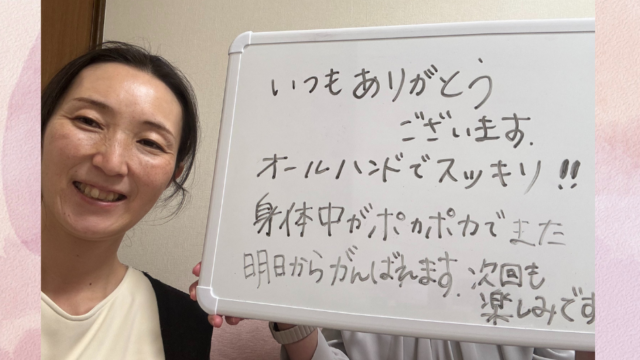 いつもありがとう
ございます.
オールハンドでスッキリ!!
身体中がポカポカでまた
明日からがんばれます.次回も
楽しみです